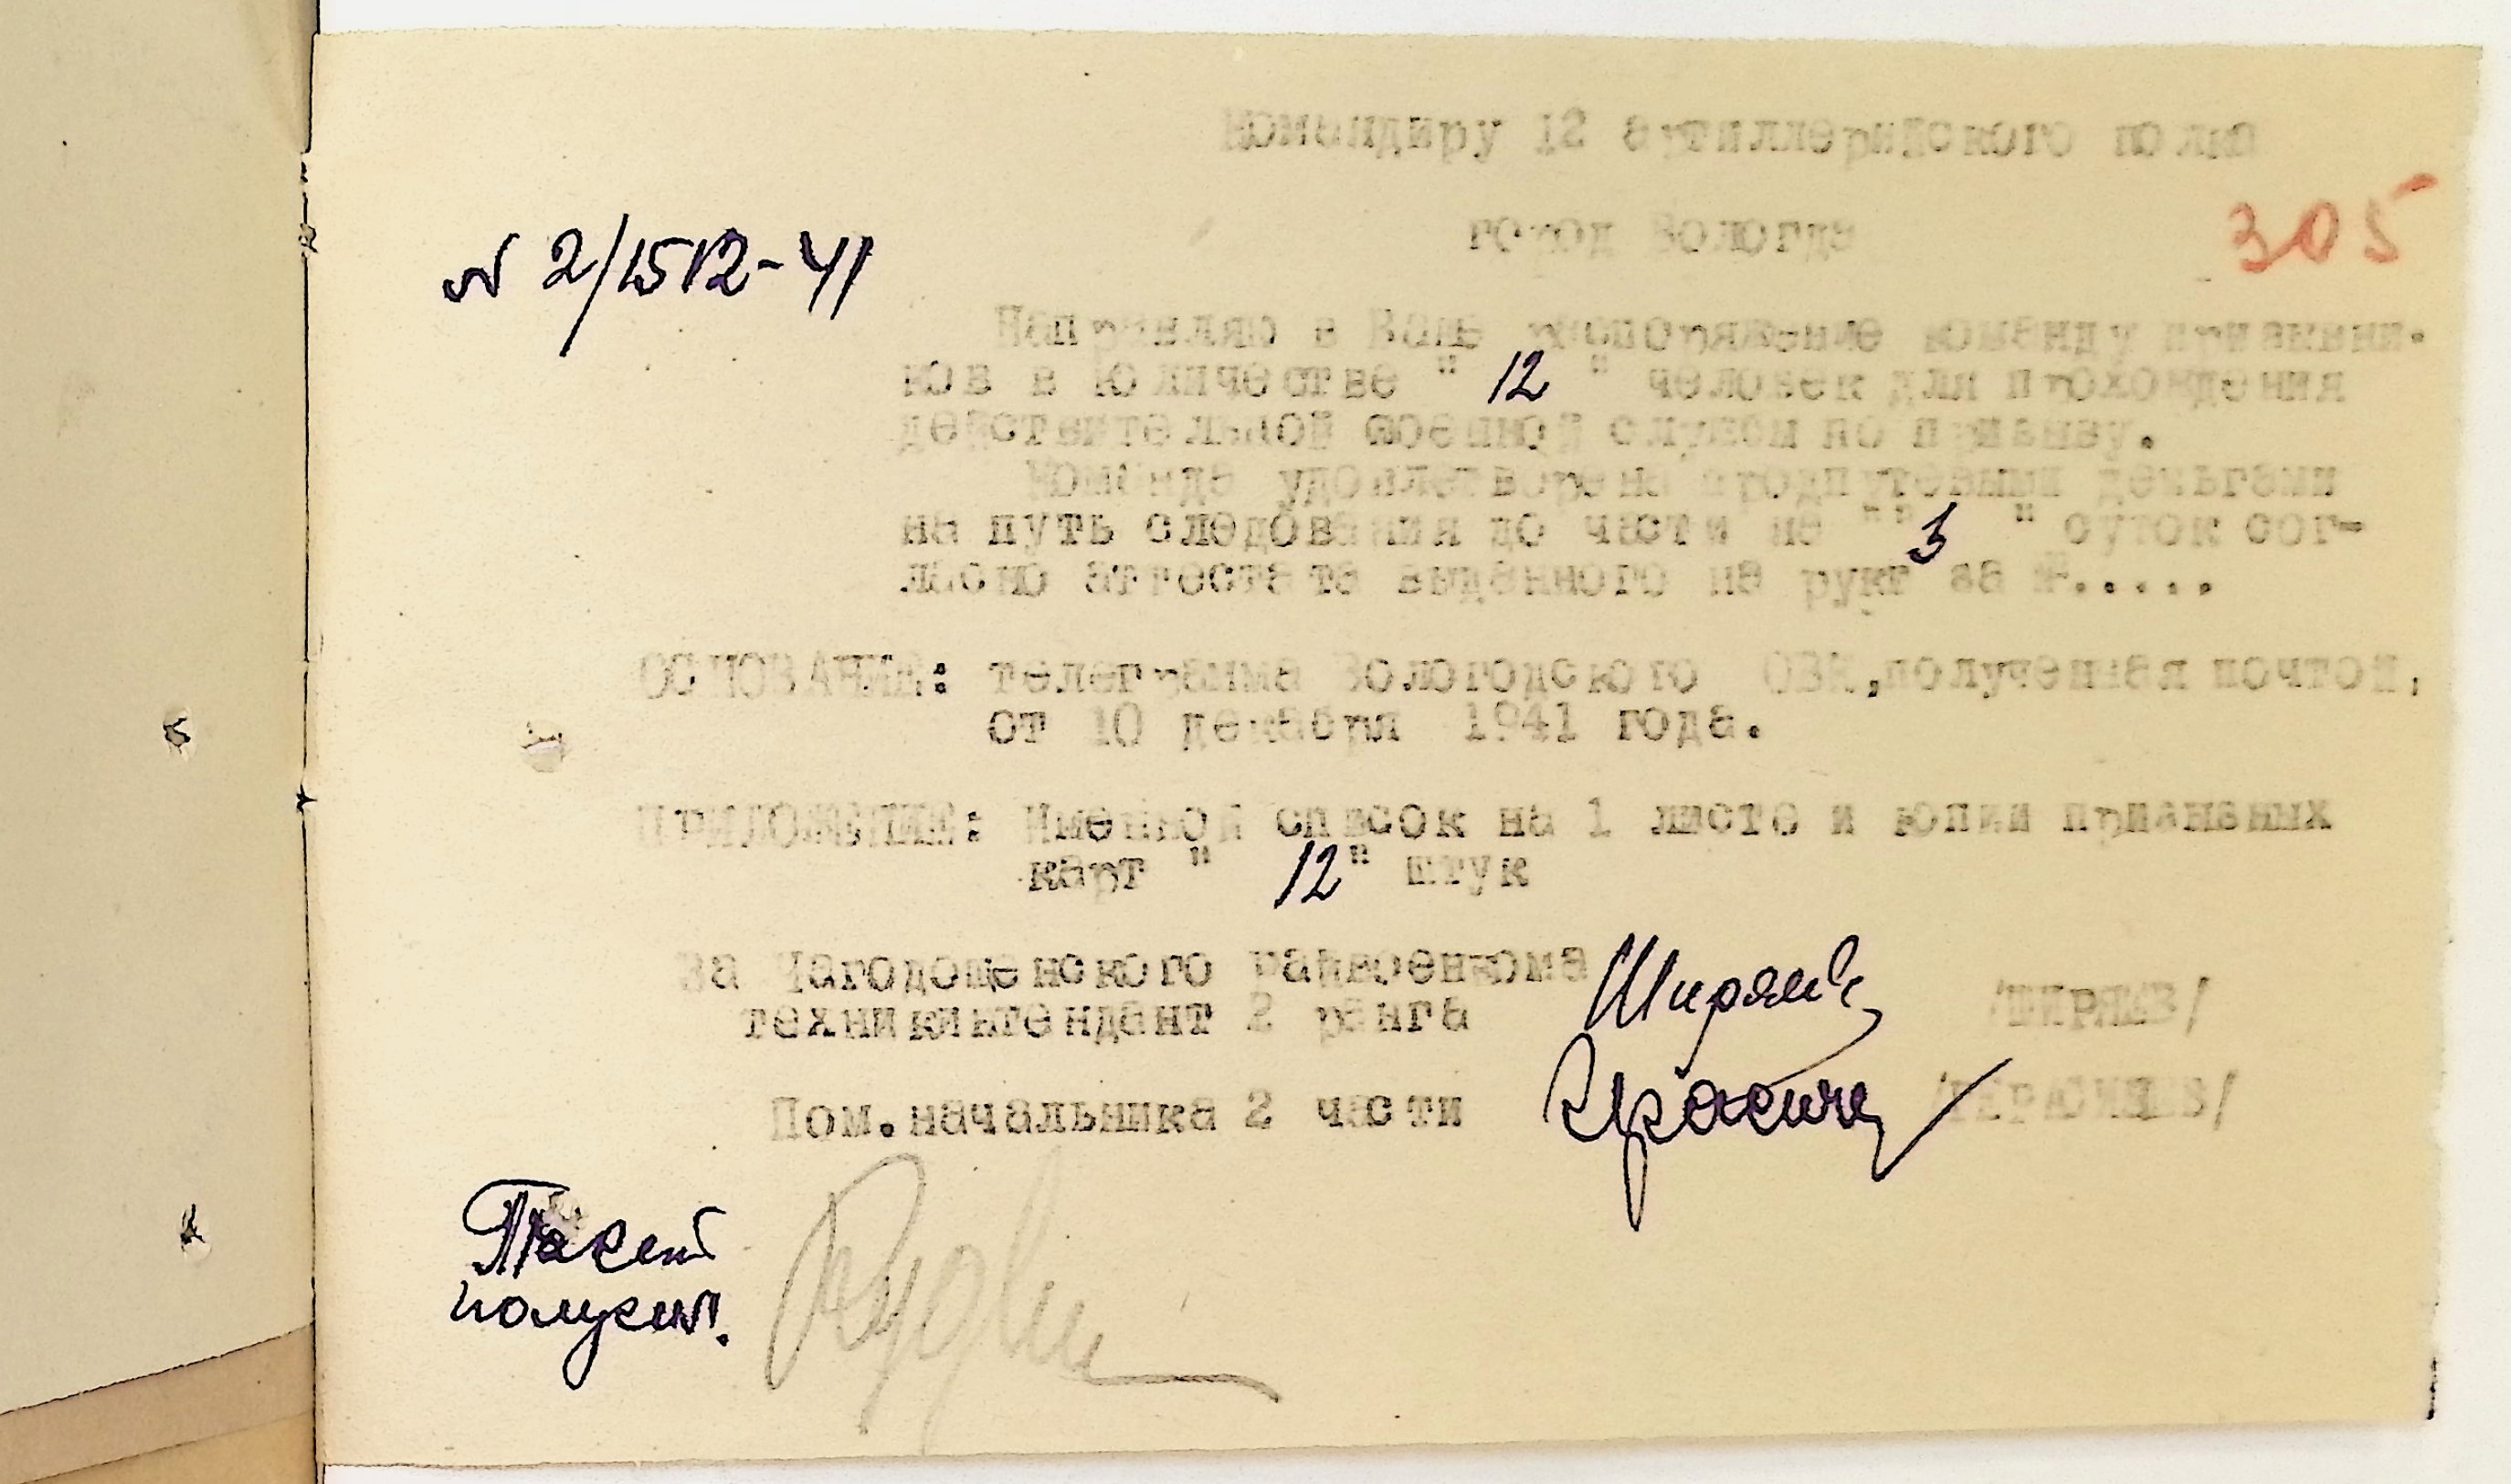 Командиру 12 артиллерийского полка
305
город Вологда
№ 2/1512-41
Направляю в Ваше распоряжение команду призывни-
ков в количестве " 12 " человек для прохождения
действительной военной службы по призыву.
Команда удовлетворена продпутевыми деньгами
на путь следования до части на " " 3 " суток сог-
ласно аттестата выданного на руки за №.....
ОСНОВАНИЕ: телеграмма Вологодского ОВК, полученная почтой,
от 10 декабря 1941 года.
ПРИЛОЖЕНИЕ: Именной список на 1 листе и копии призывных
карт " 12 " штук
За Чагодощенского райвоенкома
техникинтендант 2 ранга Ширяев /ШИРЯЕВ/
Пом.начальника 2 части
Пакет
получил.